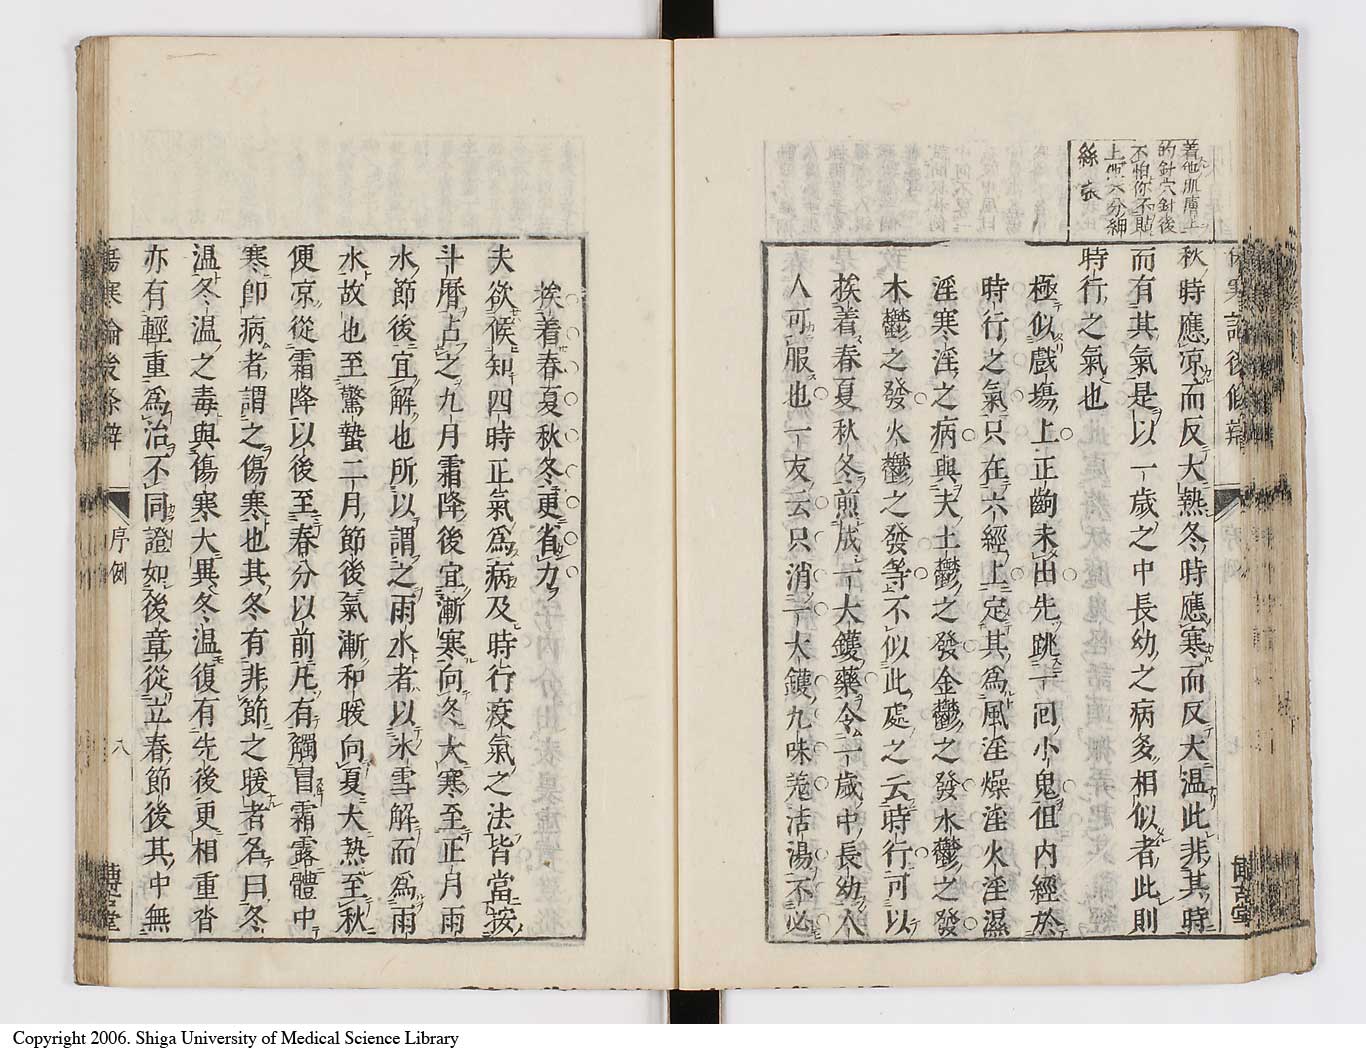 着他肌膚上
的針穴針後
不怕你不貼
上他六分紳
絲裘
秋時應凉而反大熱冬時應寒而反大温此非其時
而有其氣是以一歲之中長幼之病多相似者此則
時行之氣也
極似戲塲上正齣未出先跳一回小鬼但內經於
時行之氣只在六經上定其為風淫燥淫火淫濕
淫寒淫之病與夫土鬱之發金鬱之發水鬱之發
木鬱之發火鬱之發等不似此處之云時行可以
挨着春夏秋冬煎成一大鑊藥令一歲中長幼人
人可服也一友云只消一大鑊九味羗活湯不必
挨着春夏秋冬更省力
夫欲候知四時正氣為病及時行疫氣之法皆當按
斗曆占之九月霜降後宜漸寒向冬大寒至正月雨
水節後宜解也所以謂之雨水者以氷雪解而為雨
水故也至驚蟄二月節後氣漸和暖向夏大熱至秋
便凉從霜降以後至春分以前凡有觸冒霜露體中
寒即病者謂之傷寒也其冬有非節之暖者名曰冬
温冬温之毒與傷寒大異冬温復有先後更相重沓
亦有輕重為治不同證如後章從立春節後其中無
傷寒論後條辨
序例
八
Copyright 2006. Shiga University of Medical Science Library